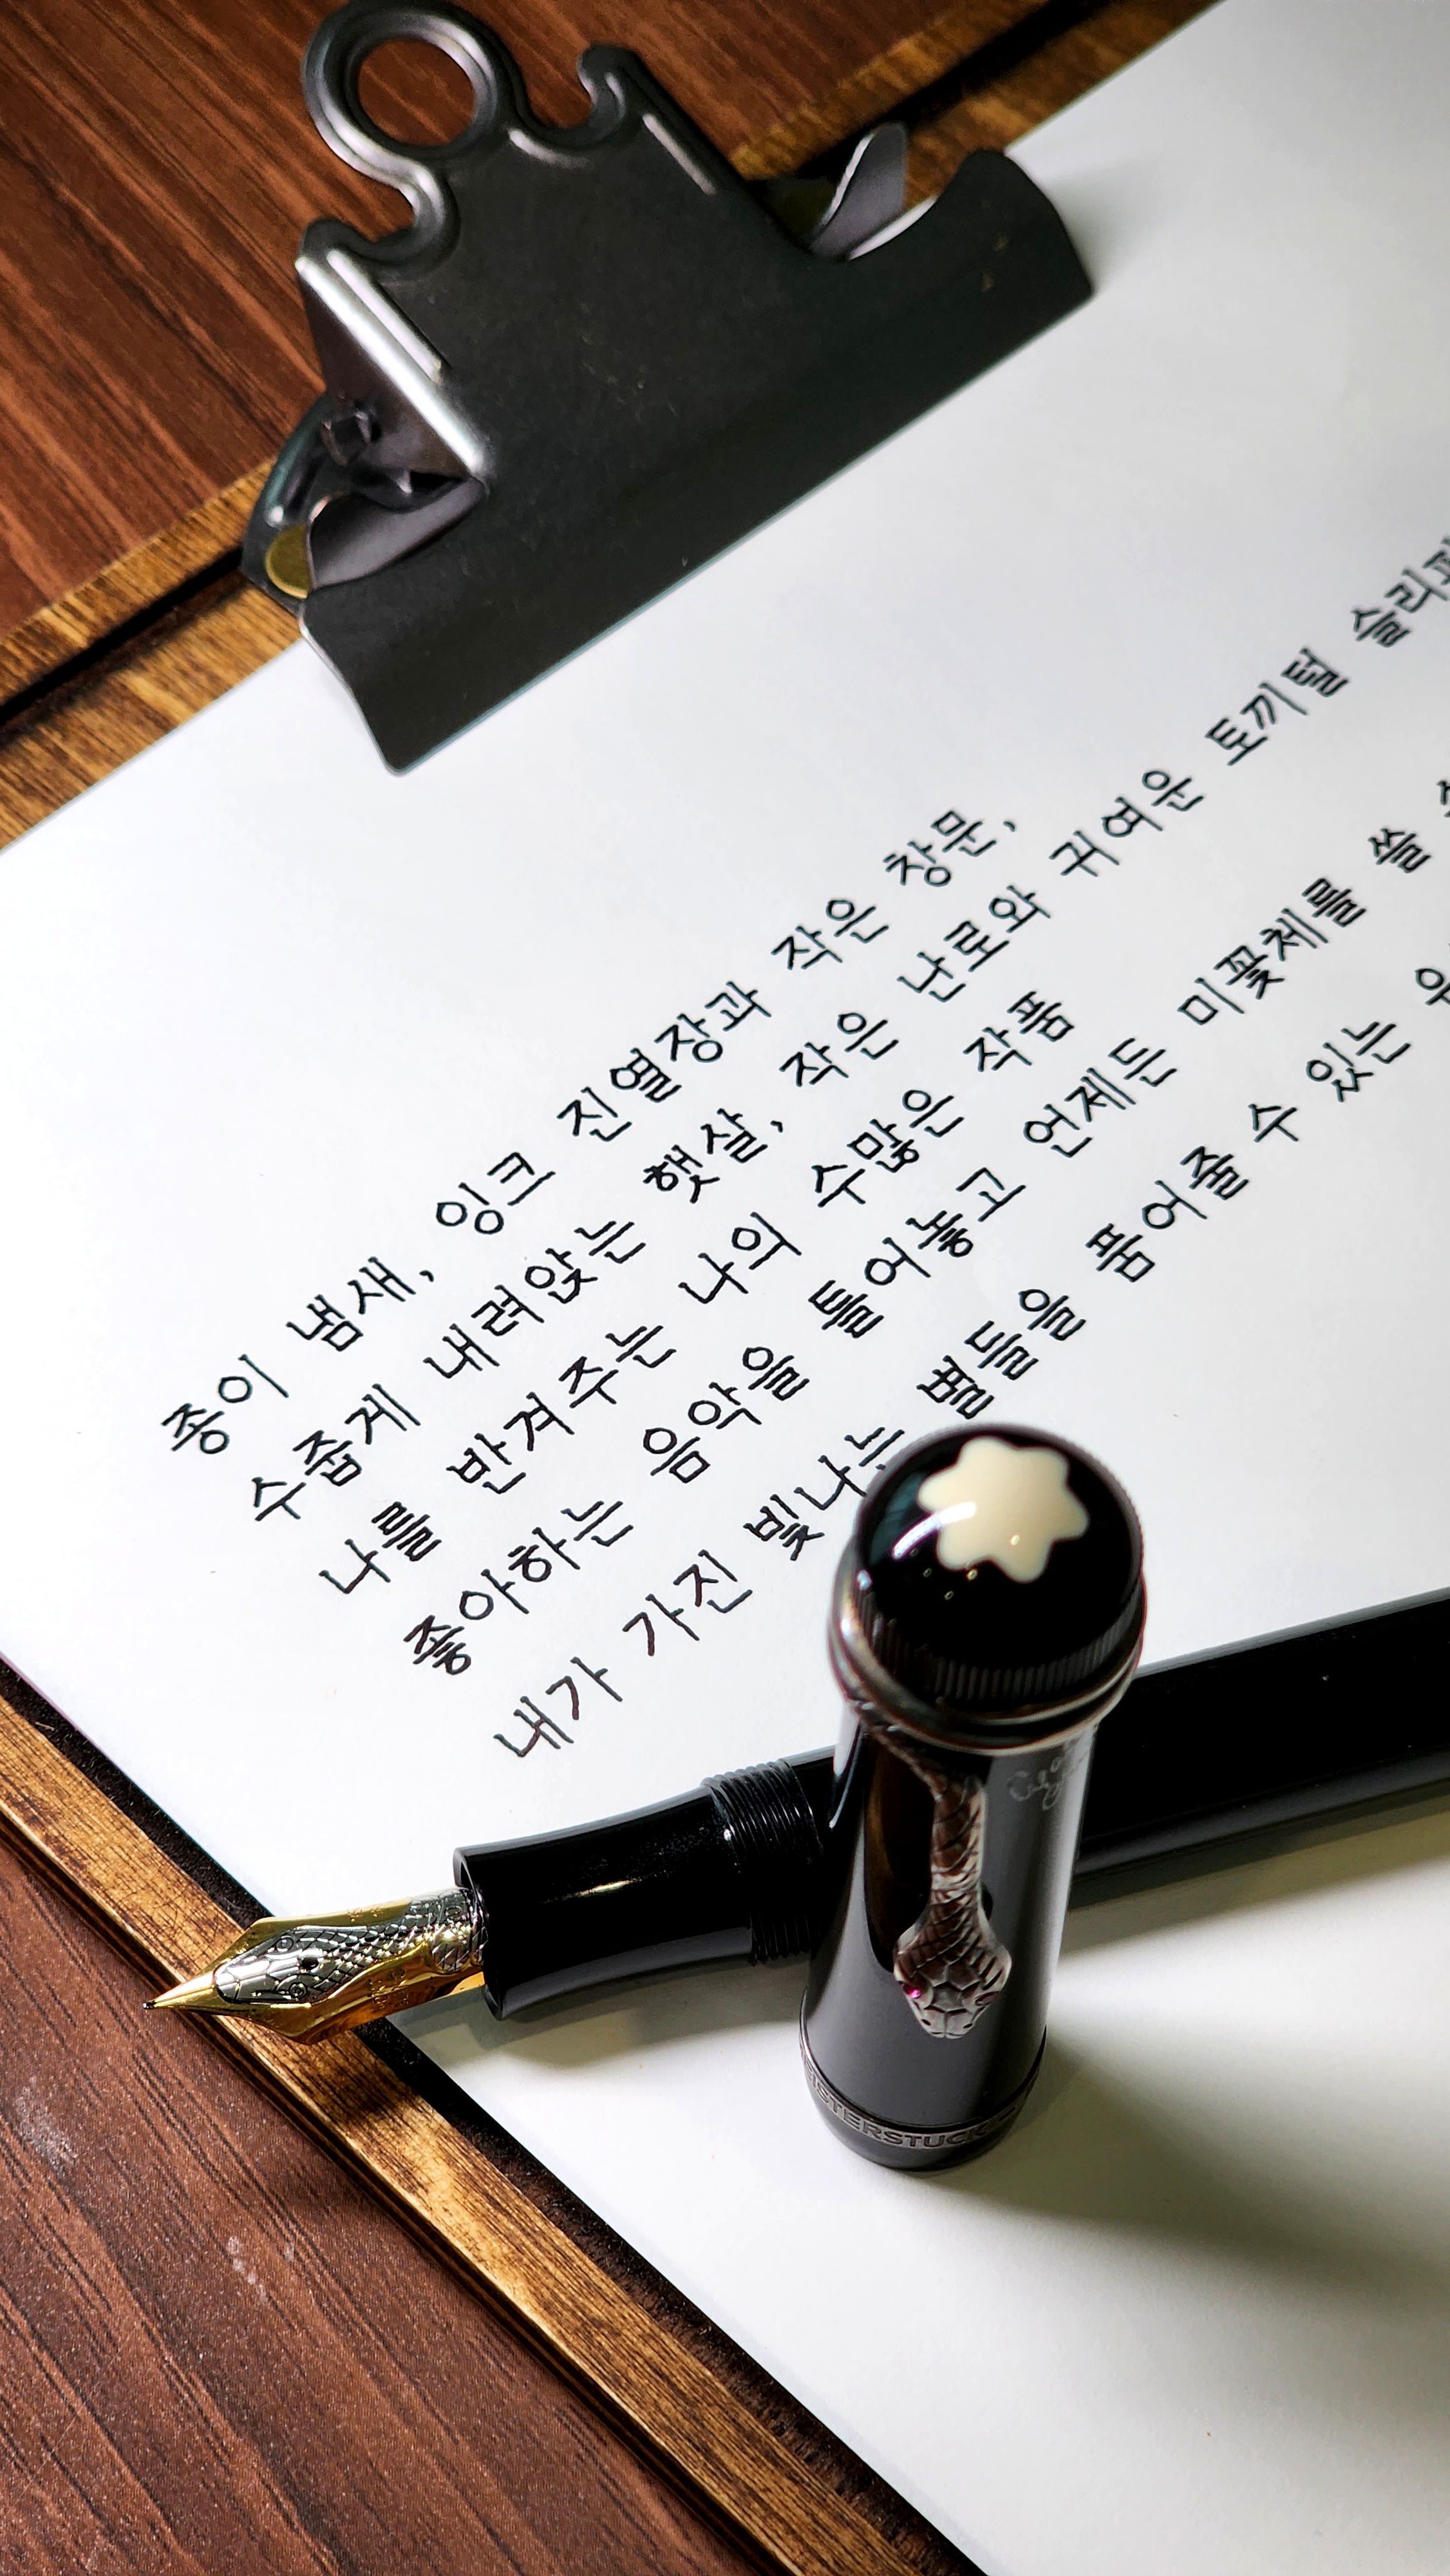 종이 냄새, 잉크 진열장과 작은 창문,
수줍게 내려앉는 햇살, 작은 난로와 귀여운 토끼털
나를 반겨주는 나의 수많은 작품
좋아하는 음악을 틀어놓고 언제든 미꽃체를 쓸
내가 가진 빛나는 별들을 품어줄 수 있는